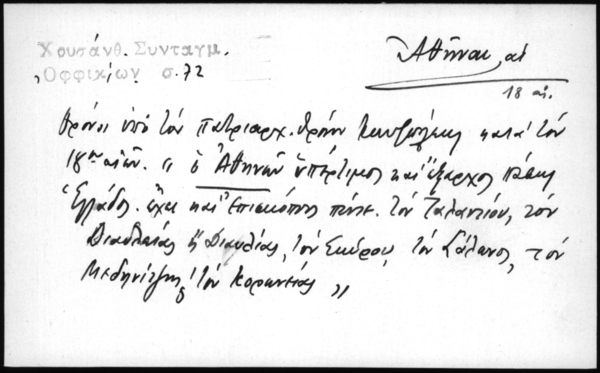 Χρυσάνθ. Συνταγμ.
Ὀφφικίων σ. 72
Ἀθῆναι, αἱ
18 αἰ.
Θρόνοι ὑπό τόν πατριαρχ. θρόνον Κων)πόλεως κατά τόν
18ον αἰῶν. "ὁ Ἀθηνῶν ὑπέρτιμος καί ἔξαρχος πάσης
Ἑλλάδος. ἔχει καί ἐπισκόπους πέντε. τόν Ταλαντίου, τόν
Διαυλείας ἤ Διαυλίας, τόν Σκύρου, τόν Σόλωνος, τόν
Μεδηνίτζης & τόν Κορωνείας"